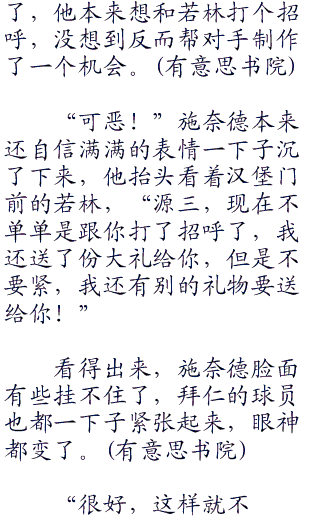 了，他本来想和若林打个招
呼，没想到反而帮对手制作
了一个机会。(有意思书院)
“可恶！”施奈德本来
还自信满满的表情一下子沉
了下来，他抬头看着汉堡门
前的若林，“源三，现在不
单单是跟你打了招呼了，我
还送了份大礼给你，但是不
要紧，我还有别的礼物要送
给你！”
看得出来，施奈德脸面
有些挂不住了，拜仁的球员
也都一下子紧张起来，眼神
都变了。(有意思书院)
“很好，这样就不